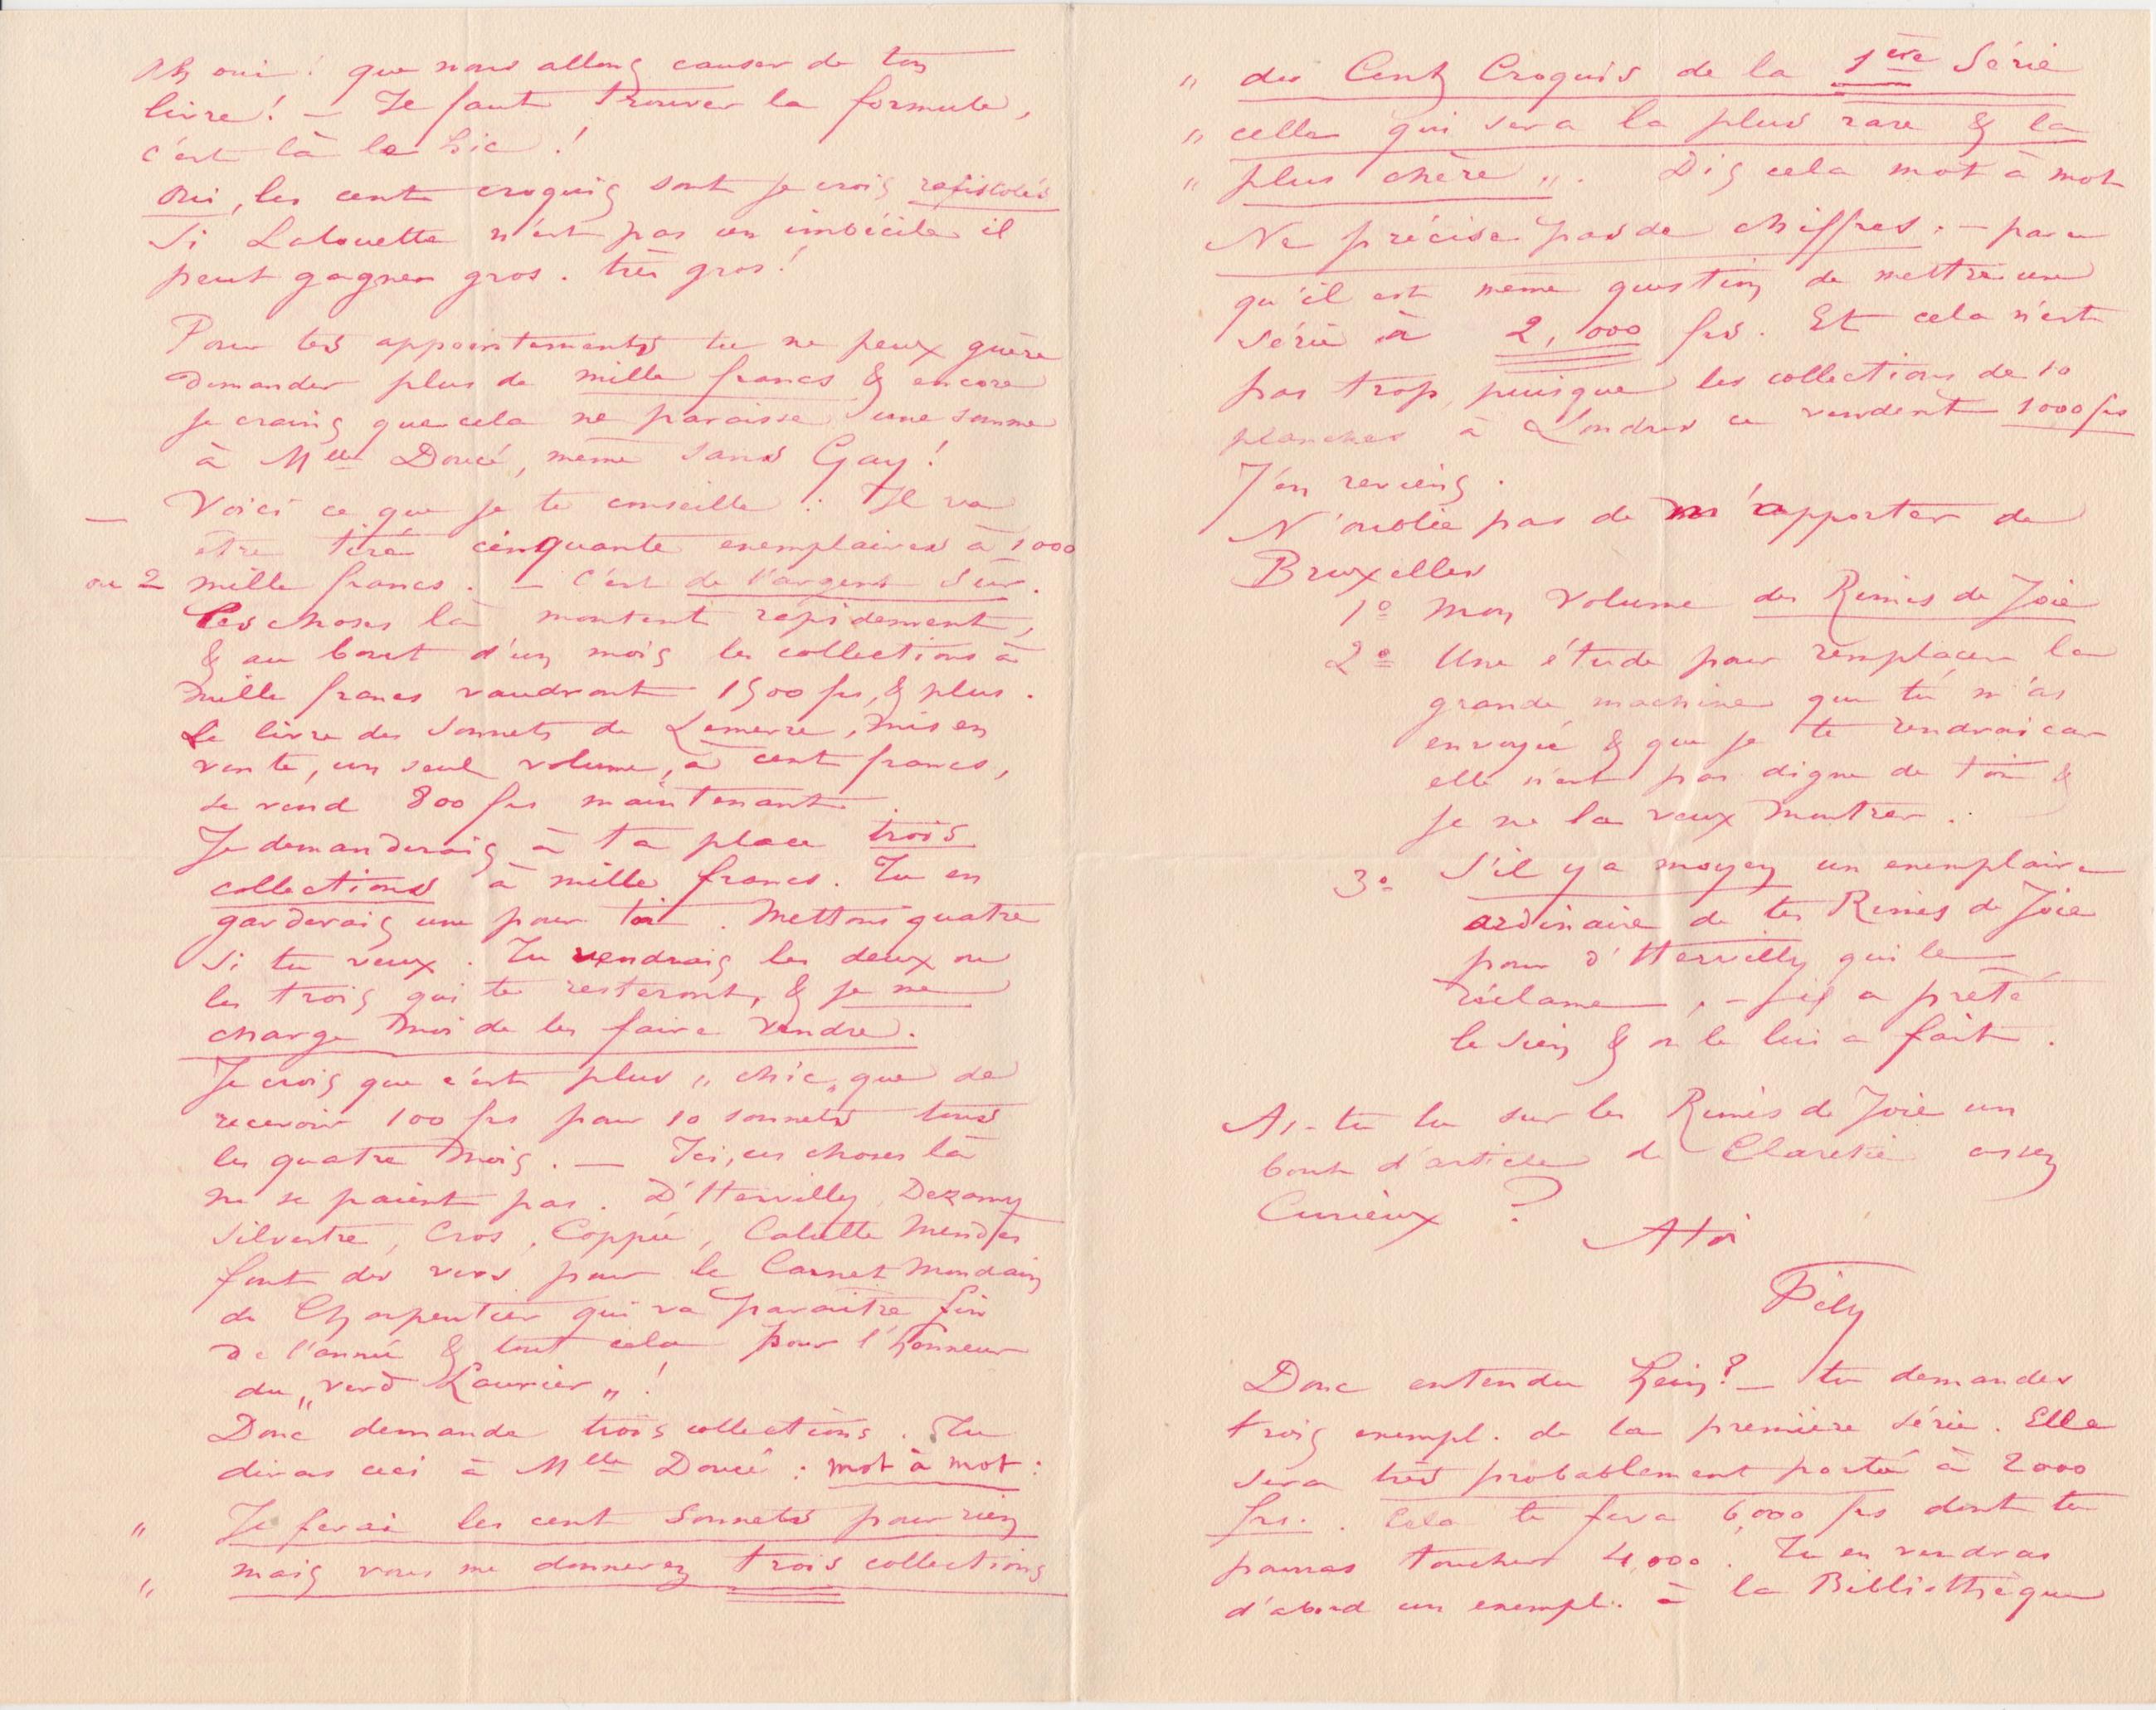 Ah oui ! que nous allons causer de ton
livre ! – Il faut trouver la formule,
c'est là le hic !
Oui, les cent croquis sont je crois refistolés
Si Lalouette n'est pas un imbécile il
peut gagner gros. très gros !
Pour tes appointements tu ne peux guère
demander plus de mille francs & encore
je crains que cela ne paraisse une somme
à Mlle Doucé, même sans Gay !
– Voici ce que je te conseille : Il va
être tiré cinquante exemplaires à 1000
ou 2 mille francs. – C'est de l'argent sûr.
Ces choses là montent rapidement,
& au bout d'un mois les collections à
mille francs vaudront 1500 frs, & plus.
Le livre des Sonnets de Lemerre, mis en
vente, un seul volume, à cent francs,
se vend 800 frs maintenant.
Je demanderais à ta place trois
collections à mille francs. Tu en
garderais une pour toi. Mettons quatre
si tu veux. Tu vendrais les deux ou
les trois qui te resteront, & je me
charge moi de les faire vendre.
Je crois que c'est plus „ chic „ que de
recevoir 100 frs pour 10 sonnets tous
les quatre mois. – Ici, ces choses là
ne se paient pas. D'Hervilly, Dezamy
Silvestre, Cros, Coppée, Catulle Mendès
font des vers pour le Carnet Mondain
de Charpentier qui va paraître fin
de l'année & tout cela pour l'honneur
du „ verd Laurier „ !
Donc demande trois collections. Tu
diras ceci à Mlle Doucé : mot à mot :
„ Je ferai les cent Sonnets pour rien
„ mais vous me donnerez trois collections
„ des Cent Croquis de la 1ère Série
„ celle qui sera la plus rare & la
„ plus chère „. Dis cela mot à mot
Ne précise pas de chiffres. – parce
qu'il est même question de mettre une
série à 2,000 frs. Et cela n'est
pas trop, puisque les collections de 10
planches à Londres ce vendent 1000 frs
J'en reviens.
N'oublie pas de m'apporter de
Bruxelles
1º Mon volume des Rimes de Joie
2º Une étude pour remplacer la
grande machine que tu m'as
envoyée & que je te rendrai car
elle n'est pas digne de toi &
je ne la veux montrer.
3º S'il y a moyen un exemplaire
ordinaire de tes Rimes de Joie
pour d'Hervilly qui le
réclame, – il a prêté
le sien & on le lui a fait.
As-tu lu sur les Rimes de Joie un
bout d'article de Claretie assez
Curieux ?
A toi
Fély
Donc entendu hein ? – tu demandes
trois exempl. de la première série. Elle
sera très probablement portée à 2000
frs. Cela te fera 6,000 frs dont tu
pourras toucher 4,000. Tu en vendras
d'abord un exempl. à la Bibliothèque